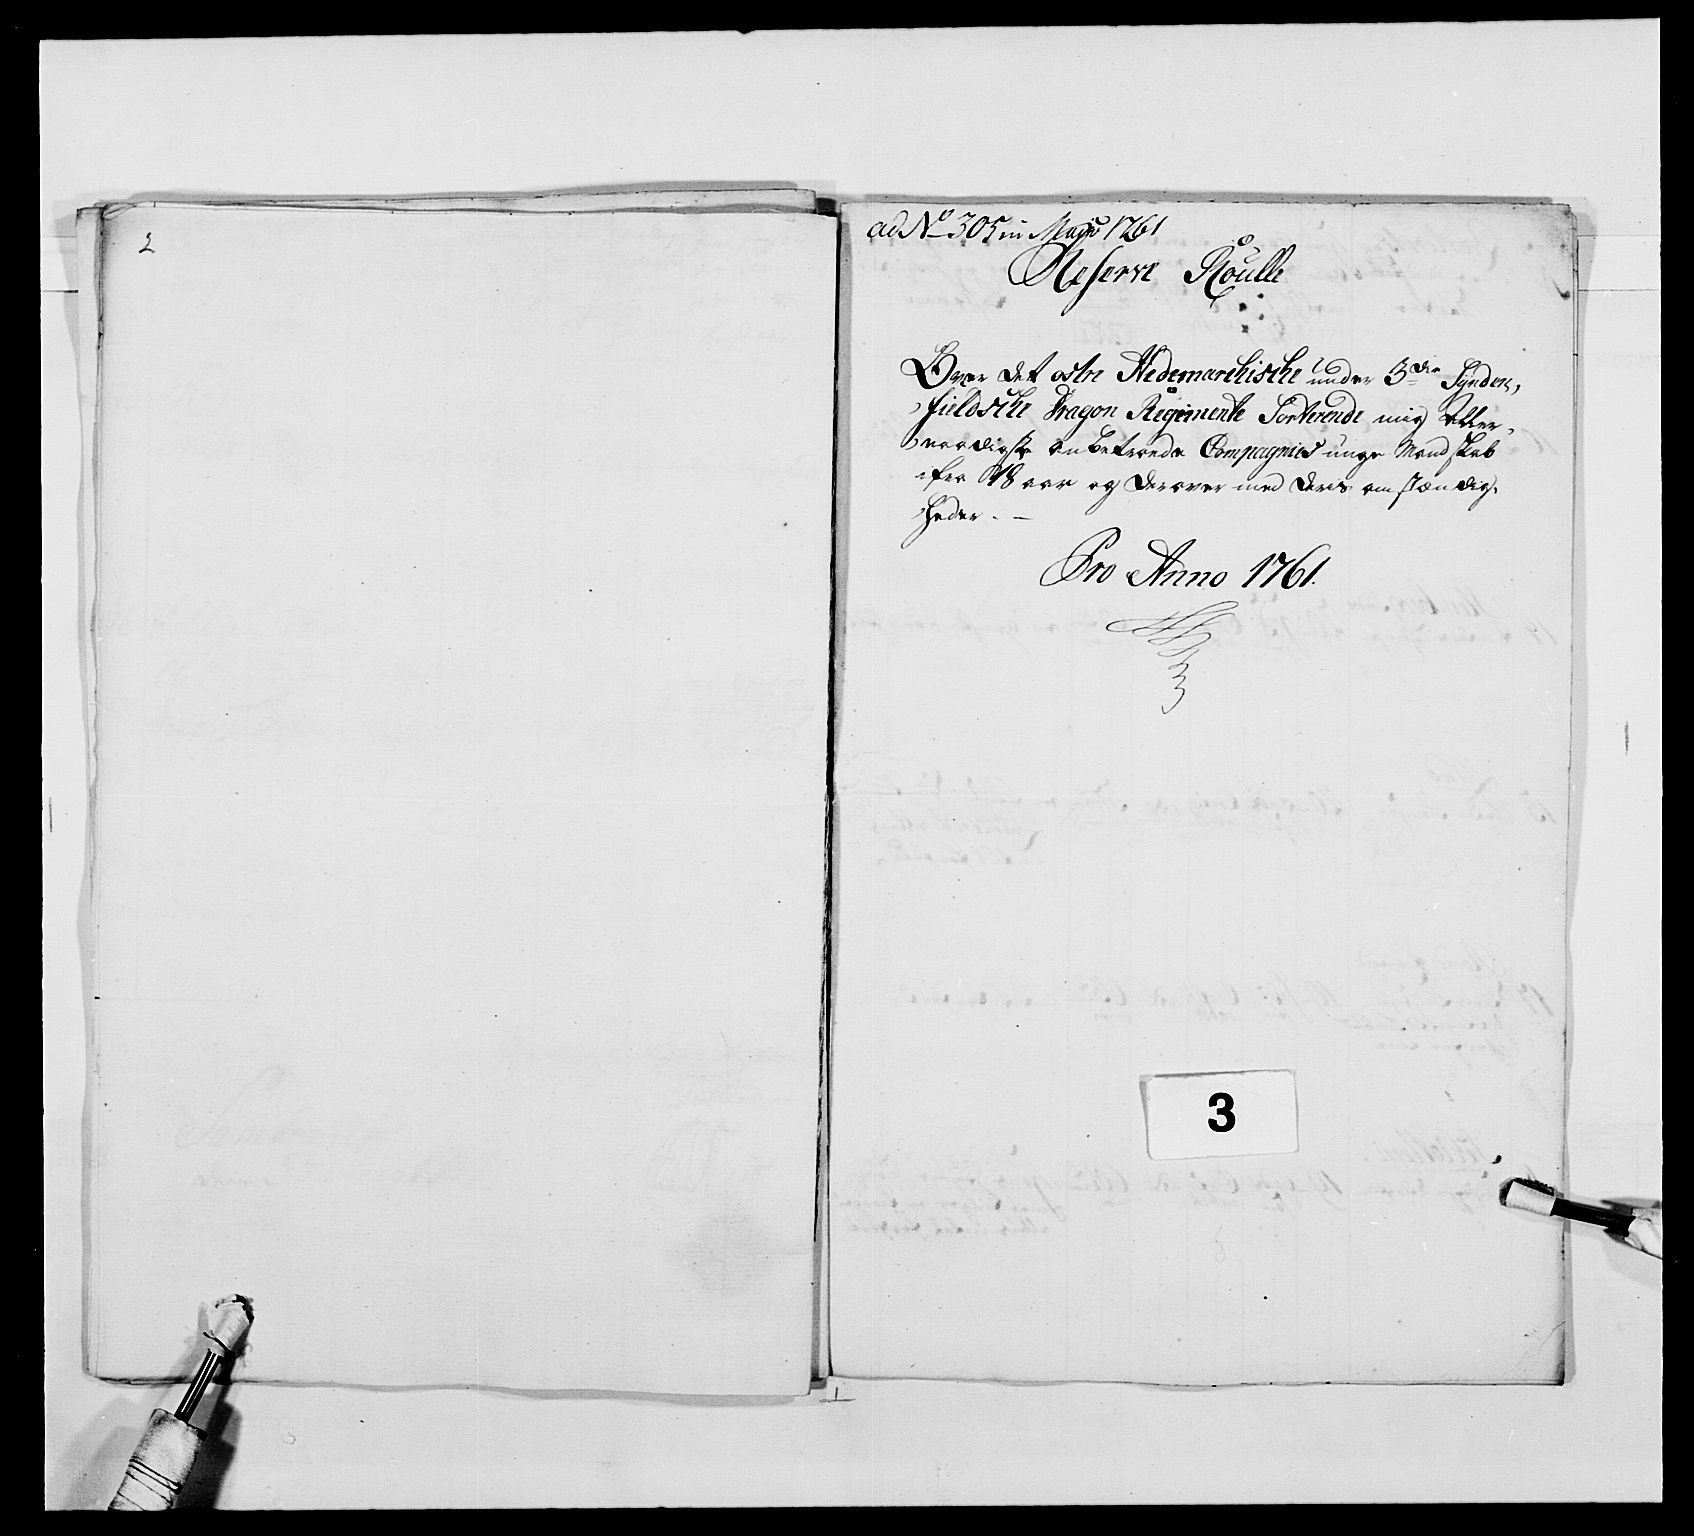 2
ad No 305 in Majo 1761
Reserve Roulle
Over det østre Hedemarchische under 3die Synden,
fieldsche Dragon Regimente Sorterende mig Aller,
naadigste anbetroede Compagnies unge Mandskab
ifra 18 aar og derover med deris omstændig,
heder. –
Pro Anno 1761.
3